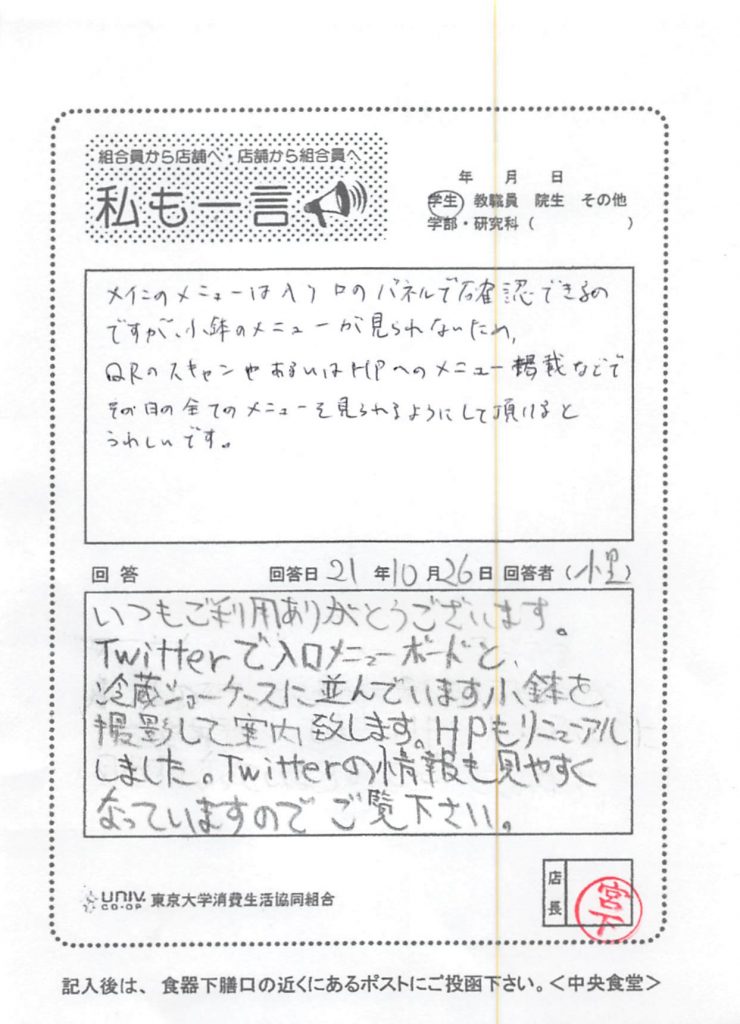 組合員から店舗へ・店舗から組合員へ
私も一言
年 月 日
学生 教職員 院生 その他
学部・研究科（ ）
メインのメニューは入り口のパネルで確認できるの
ですが、小鉢のメニューが見られないため、
QRのスキャンやあるいはHPへのメニュー掲載などで
その日の全てのメニューを見られるようにして頂けると
うれしいです。
回答 回答日 21 年 10 月 26 日 回答者（小里）
いつもご利用ありがとうございます。
Twitterで入口メニューボードと、
冷蔵ショーケースに並んでいます小鉢を
撮影して案内致します。HPもリニューアル
しました。Twitterの情報も見やすく
なっていますので ご覧下さい。
店長
宮下
UNIV. CO-OP 東京大学消費生活協同組合
記入後は、食器下膳口の近くにあるポストにご投函下さい。＜中央食堂＞